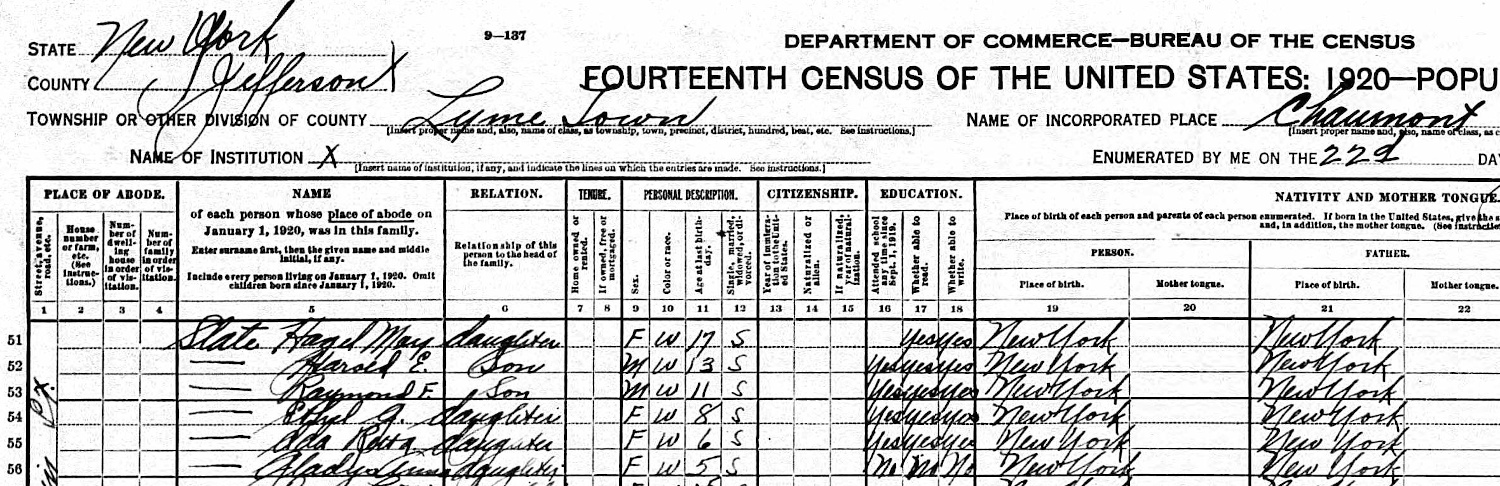 STATE New York
9—137
DEPARTMENT OF COMMERCE—BUREAU OF THE CENSUS
COUNTY Jefferson X
FOURTEENTH CENSUS OF THE UNITED STATES: 1920—POPU
TOWNSHIP OR OTHER DIVISION OF COUNTY Lyme Town
[Insert proper name and, also, name of class, as township, town, precinct, district, hundred, beat, etc. See instructions.]
NAME OF INCORPORATED PLACE Chaumont
[Insert proper name and, also, name of class, as c
NAME OF INSTITUTION X
[Insert name of institution, if any, and indicate the lines on which the entries are made. See instructions.]
ENUMERATED BY ME ON THE 22d DA
PLACE OF ABODE. NAME RELATION. TENURE. PERSONAL DESCRIPTION. CITIZENSHIP. EDUCATION. NATIVITY AND MOTHER TONGUE.
Street, avenue, road, etc.
House number or farm, etc. (See instructions.)
Number of dwelling house in order of visitation.
Number of family in order of visitation.
of each person whose place of abode on
January 1, 1920, was in this family.
Enter surname first, then the given name and middle
initial, if any.
Include every person living on January 1, 1920. Omit
children born since January 1, 1920.
Relationship of this
person to the head of
the family.
Home owned or rented.
If owned, free or mortgaged.
Sex.
Color or race.
Age at last birthday.
Single, married, widowed, or divorced.
Year of immigration to the United States.
Naturalized or alien.
If naturalized, year of naturalization.
Attended school any time since Sept. 1, 1919.
Whether able to read.
Whether able to write.
Place of birth of each person and parents of each person enumerated. If born in the United States, give the s
and, in addition, the mother tongue. (See instructio
PERSON. FATHER.
Place of birth. Mother tongue. Place of birth. Mother tongue.
1 2 3 4 5 6 7 8 9 10 11 12 13 14 15 16 17 18 19 20 21 22
51 Slate Hazel May daughter F W 17 S Yes Yes New York New York
52 — Harold E. Son M W 13 S Yes Yes Yes New York New York
53 — Raymond F. Son M W 11 S Yes Yes Yes New York New York
54 — Ethyl G. daughter F W 8 S Yes Yes Yes New York New York
55 — Ada Retta daughter F W 6 S Yes Yes Yes New York New York
56 — Gladys Anna daughter F W 5 S No No No New York New York